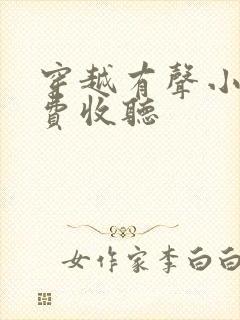 穿越有聲小
費收聽
女作家李白白